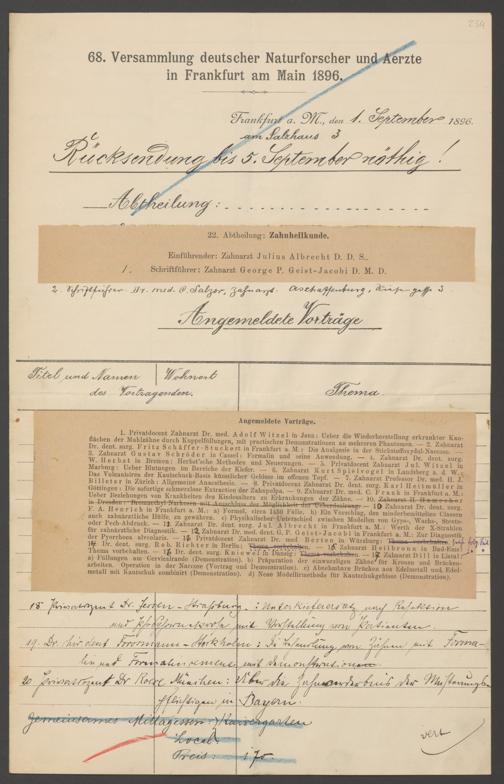 234
68. Versammlung deutscher Naturforscher und Aerzte
in Frankfurt am Main 1896.
Frankfurt a. M., den 1. September 1896.
am Salzhaus 3
Rücksendung bis 5. September nöthig!
Abtheilung:
22. Abtheilung: Zahnheilkunde.
Einführender: Zahnarzt Julius Albrecht D. D. S.
1. Schriftführer: Zahnarzt George P. Geist-Jacobi D. M. D.
2. Schriftführer Dr. med. C. Salzer, Zahnarzt Aschaffenburg, 3
Angemeldete Vorträge
Titel und Namen Wohnort
des Vortragenden. Thema.
Angemeldete Vorträge.
1. Privatdocent Zahnarzt Dr. med. Adolf Witzel in Jena: Ueber die Wiederherstellung erkrankter Kau-
flächen der Mahlzähne durch Kuppelfüllungen, mit practischen Demonstrationen an mehreren Phantomen. — 2. Zahnarzt
Dr. dent. surg. Fritz Schäffer-Stuckert in Frankfurt a. M.: Die Analgesie in der Stickstoffoxydul-Narcose. —
3. Zahnarzt Gustav Schröder in Cassel: Formalin und seine Anwendung. — 4. Zahnarzt Dr. dent. surg.
W. Herbst in Bremen: Herbst'sche Methoden und Neuerungen. — 5. Privatdocent Zahnarzt Jul. Witzel in
Marburg: Ueber Blutungen im Bereiche der Kiefer. — 6. Zahnarzt Kurt Spielvogel in Landsberg a. d. W.:
Das Vulcanisiren der Kautschuk-Basis künstlicher Gebisse im offenen Topf. — 7. Zahnarzt Professor Dr. med. H. J.
Billeter in Zürich: Allgemeine Anaesthesie. — 8. Privatdocent Zahnarzt Dr. dent. surg. Karl Heitmüller in
Göttingen: Die sofortige schmerzlose Extraction der Zahnpulpa. — 9. Zahnarzt Dr. med. C. Frank in Frankfurt a. M.:
Ueber Beziehungen von Krankheiten des Kindesalters zu Erkrankungen der Zähne. — 10. Zahnarzt
in Dresden: Bromaethyl-Narkosen mit Ausschluss der Möglichkeit der Ueberdosirung. — 10 Zahnarzt Dr. dent. surg.
F. A. Henrich in Frankfurt a. M.: a) Formol, circa 1200 Fälle. b) Ein Vorschlag, den internationalen Chiffren
auch zahnärztliche Dinge, zu geben. c) Physikalischer Unterschied zwischen Modellen von Gyps-, Wachs-, Stents-
oder Pech-Abdruck. — 11 Zahnarzt Dr. dent. surg. Jul. Albrecht in Frankfurt a. M.: Werth der X-Strahlen
für zahnärztliche Diagnostik. — 12 Zahnarzt Dr. med. dent. G. P. Geist-Jacobi in Frankfurt a. M.: Zur Diagnostik
der Pyorrhoea alveolaris. — 13 Privatdocent Zahnarzt Dr. med. Berten in Würzburg: Thema vorbehalten.
14 Dr. dent. surg. R. A. Richter in Berlin: Thema vorbehalten. — 15 Zahnarzt Heilbronn in Bad-Ems:
Thema vorbehalten. — 16 Dr. dent. surg. Kniewel in Danzig: Thema vorbehalten. — 17 Zahnarzt Dill in Liestal:
a) Füllungen am Corvinlande (Demonstration). b) Präparation der einwurzligen Zähne für Kronen und Brücken-
arbeiten. Operation in der Narcose (Vortrag und Demonstration). c) Abnehmbare Brücken aus Edelmetall und Edel-
metall mit Kautschuk combinirt (Demonstration). d) Neue Modellirmethode für Kautschukgebisse (Demonstration).
18. Privatdozent Dr. Strassburg: Unterkieferersatz nach Resektion
und mit Vorstellung von Patienten.
19. Dr. Stockholm: Die Behandlung von Zähnen mit Forma-
lin und mit Demonstrationen
20. Privatdozent Dr. München: Ueber die Zahnverderbnis der
pflichtigen in Bayern.
Gemeinsames Mittagessen: Kaisergarten
Local:
Preis: 1.75.
vert